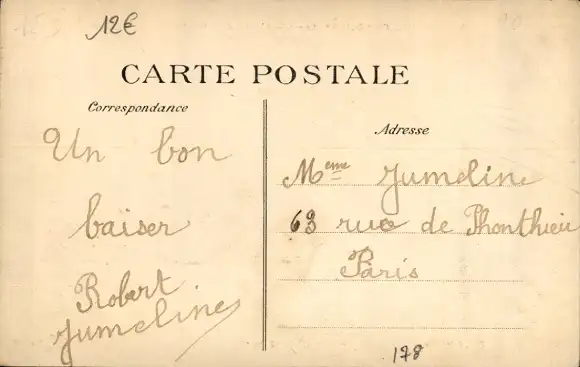 12€
CARTE POSTALE
Correspondance
Un bon
baiser
Robert
Jumeline
Adresse
Meme Jumeline
63 rue de Phonthieu
Paris
178